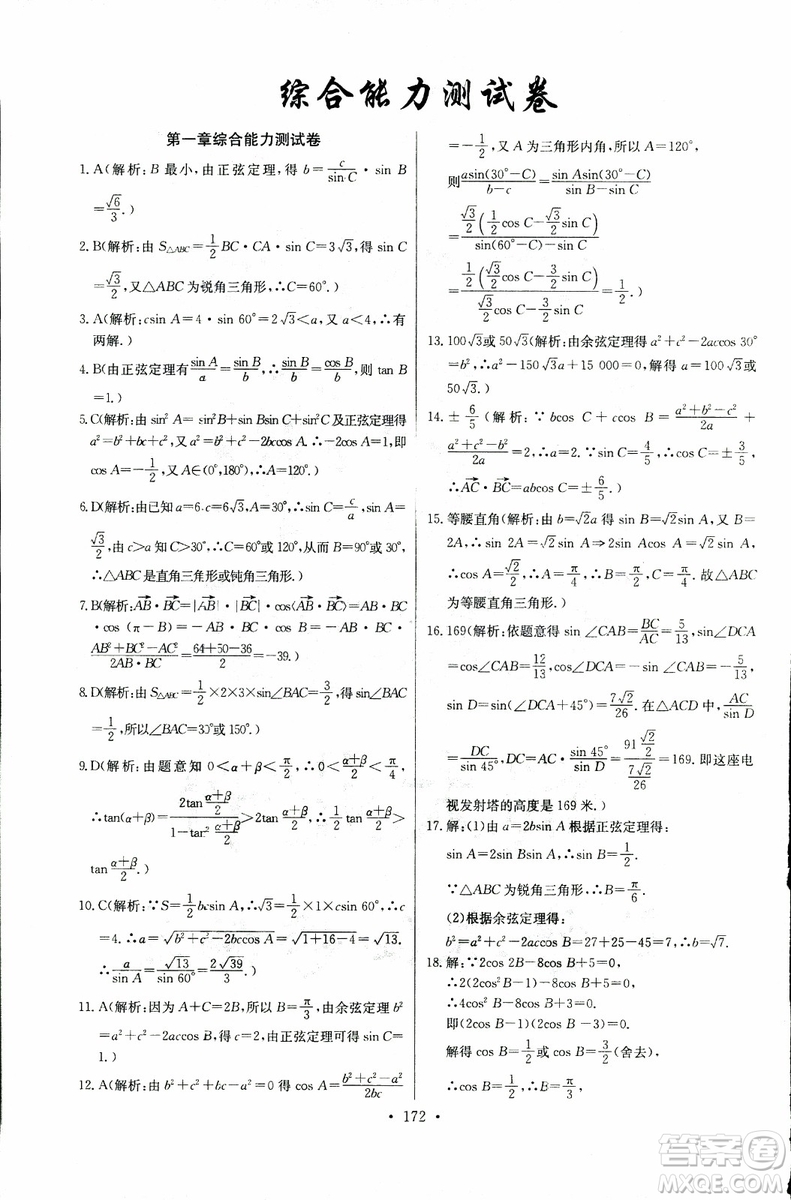 综合能力测试卷
第一章综合能力测试卷
1. A(解析:B 最小,由正弦定理,得 b=c/sin C·sin B
=√6/3.)
2. B(解析:由 S△ABC=1/2 BC·CA·sin C=3√3,得 sin C
=√3/2,又△ABC 为锐角三角形,∴C=60°.)
3. A(解析:csin A=4·sin 60°=2√3<a,又 a<4,∴有
两解.)
4. B(由正弦定理有 sin A/a=sin B/b,∴sin B/b=cos B/b,则 tan B
=1.)
5. C(解析:由 sin² A=sin² B+sin Bsin C+sin² C及正弦定理得
a²=b²+bc+c²,又 a²=b²+c²-2bccos A.∴-2cos A=1,即
cos A=-1/2,又 A∈(0°,180°),∴A=120°.)
6. D(解析:由已知 a=6,c=6√3,A=30°,∴sin C=c/a·
√3/2,由 c>a 知 C>30°,∴C=60°或 120°,从而 B=90°或 30°.
∴△ABC 是直角三角形或钝角三角形.)
7. B(解析:AB·BC=|AB|·|BC|·cos(π-B)=AB·BC
·cos (π-B)=-AB·BC·cos B=-AB·BC·
(AB²+BC²-AC²)/(2AB·BC)=-(64+50-36)/2=-39.)
8. D(解析:由 S△ABC=1/2×2×3×sin∠BAC=3/2,得 sin∠BAC
=1/2,所以∠BAC=30°或 150°.)
9. D(解析:由题意知 0<α+β<π/2,∴0<(α+β)/2<π/4,
∴tan(α+β)=2tan((α+β)/2)/(1-tan²((α+β)/2))>2tan((α+β)/2),∴tan((α+β)/2)<
tan((α+β)/2).)
10. C(解析:∵S=1/2 bcsin A,∴√3=1/2×1×csin 60°,∴c
=4.∴a=√(b²+c²-2bccos A)=√(1+16-4)=√13.
∴a/sin A=√13/sin 60°=2√39/3.)
11. A(解析:因为 A+C=2B,所以 B=π/3,由余弦定理 b²
=a²+c²-2accos B,得 c=2,由正弦定理可得 sin C=
1.)
12. A(解析:∵b²+c²-a²+bc=0 得 cos A=(b²+c²-a²)/2bc
=-1/2,又 A 为三角形内角,所以 A=120°.
则 asin(30°-C)/(b-c)=sin Asin(30°-C)/(sin B-sin C)
=√3/2(1/2 cos C-√3/2 sin C)/sin(60°-C)-sin C
=1/2(√3/2 cos C-3/2 sin C)/(√3/2 cos C-3/2 sin C)=1/2.)
13. 100√3或 50√3(解析:由余弦定理 a²+c²-2accos 30°
=b²,∴a²-150√3a+15 000=0,解得 a=100√3或
50√3.)
14. ±6/5(解析:∵bcos C+ccos B=(a²+b²-c²)/2a+
(a²+c²-b²)/2a=2,∴a=2,又∵sin C=4/5,∴cos C=±3/5,
∴AC·BC=abcos C=±6/5.)
15. 等腰直角(解析:由 b=√2a 得 sin B=√2sin A,又 B=
2A,∴sin 2A=√2sin A⇒2sin Acos A=√2sin A,
∴cos A=√2/2,∴A=45°,B=90°,C=45°.故△ABC
为等腰直角三角形.)
16. 169(解析:依题意得 sin ∠CAB=BC/AC=5/13,sin∠DCA
=cos∠CAB=12/13,cos∠DCA=-sin∠CAB=-5/13,
sin D=sin(∠DCA+45°)=7√2/26.在△ACD 中,AC/sin D
=DC/sin 45°,DC=AC·sin 45°/sin D=(91·√2/2)/(7√2/26)=169.即这座电
视发射塔的高度是 169 米.)
17. 解:(1)由 a=2bsin A 根据正弦定理得:
sin A=2sin Bsin A,∴sin B=1/2.
∵△ABC 为锐角三角形,∴B=π/6.
(2)根据余弦定理得:
b²=a²+c²-2accos B=7,∴b=√7.
18. 解:∵2cos 2B-8cos B+5=0,
∴2(2cos² B-1)-8cos B+5=0.
∴4cos² B-8cos B+3=0.
即(2cos B-1)(2cos B-3)=0.
解得 cos B=1/2或 cos B=3/2(舍去).
∴cos B=1/2,∴B=π/3,
·172·
答案圈
MXQE.COM